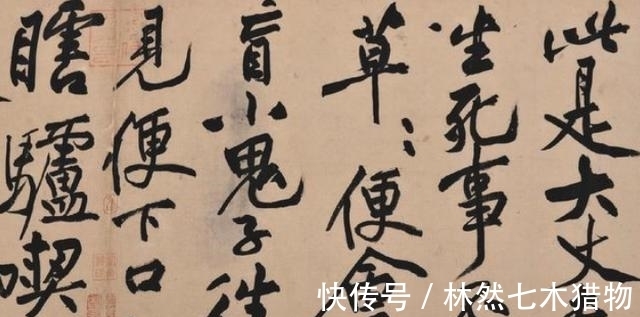 此是大丈
生死事
草〻便會
盲小鬼子往
見便下口
瞎驢喫
快传号 / 林然七木猎物